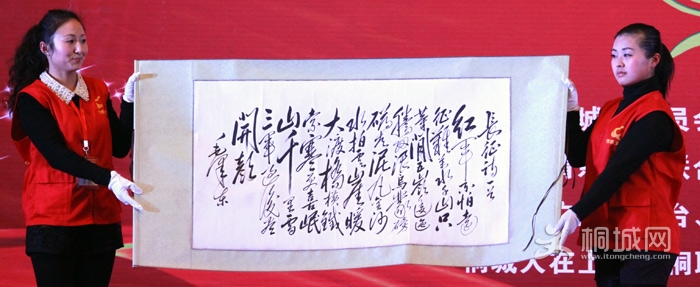 長征詩一首
紅軍不怕遠
征難萬水千山只
等閒五嶺逶迤
騰細浪烏蒙磅
礴走泥丸金沙
水拍雲崖暖
大渡橋橫鐵
索寒更喜岷
山千里雪
三軍過後盡
開顏
毛澤東
城
员会
台、
桐城人在上
桐城网
www.itongcheng.com